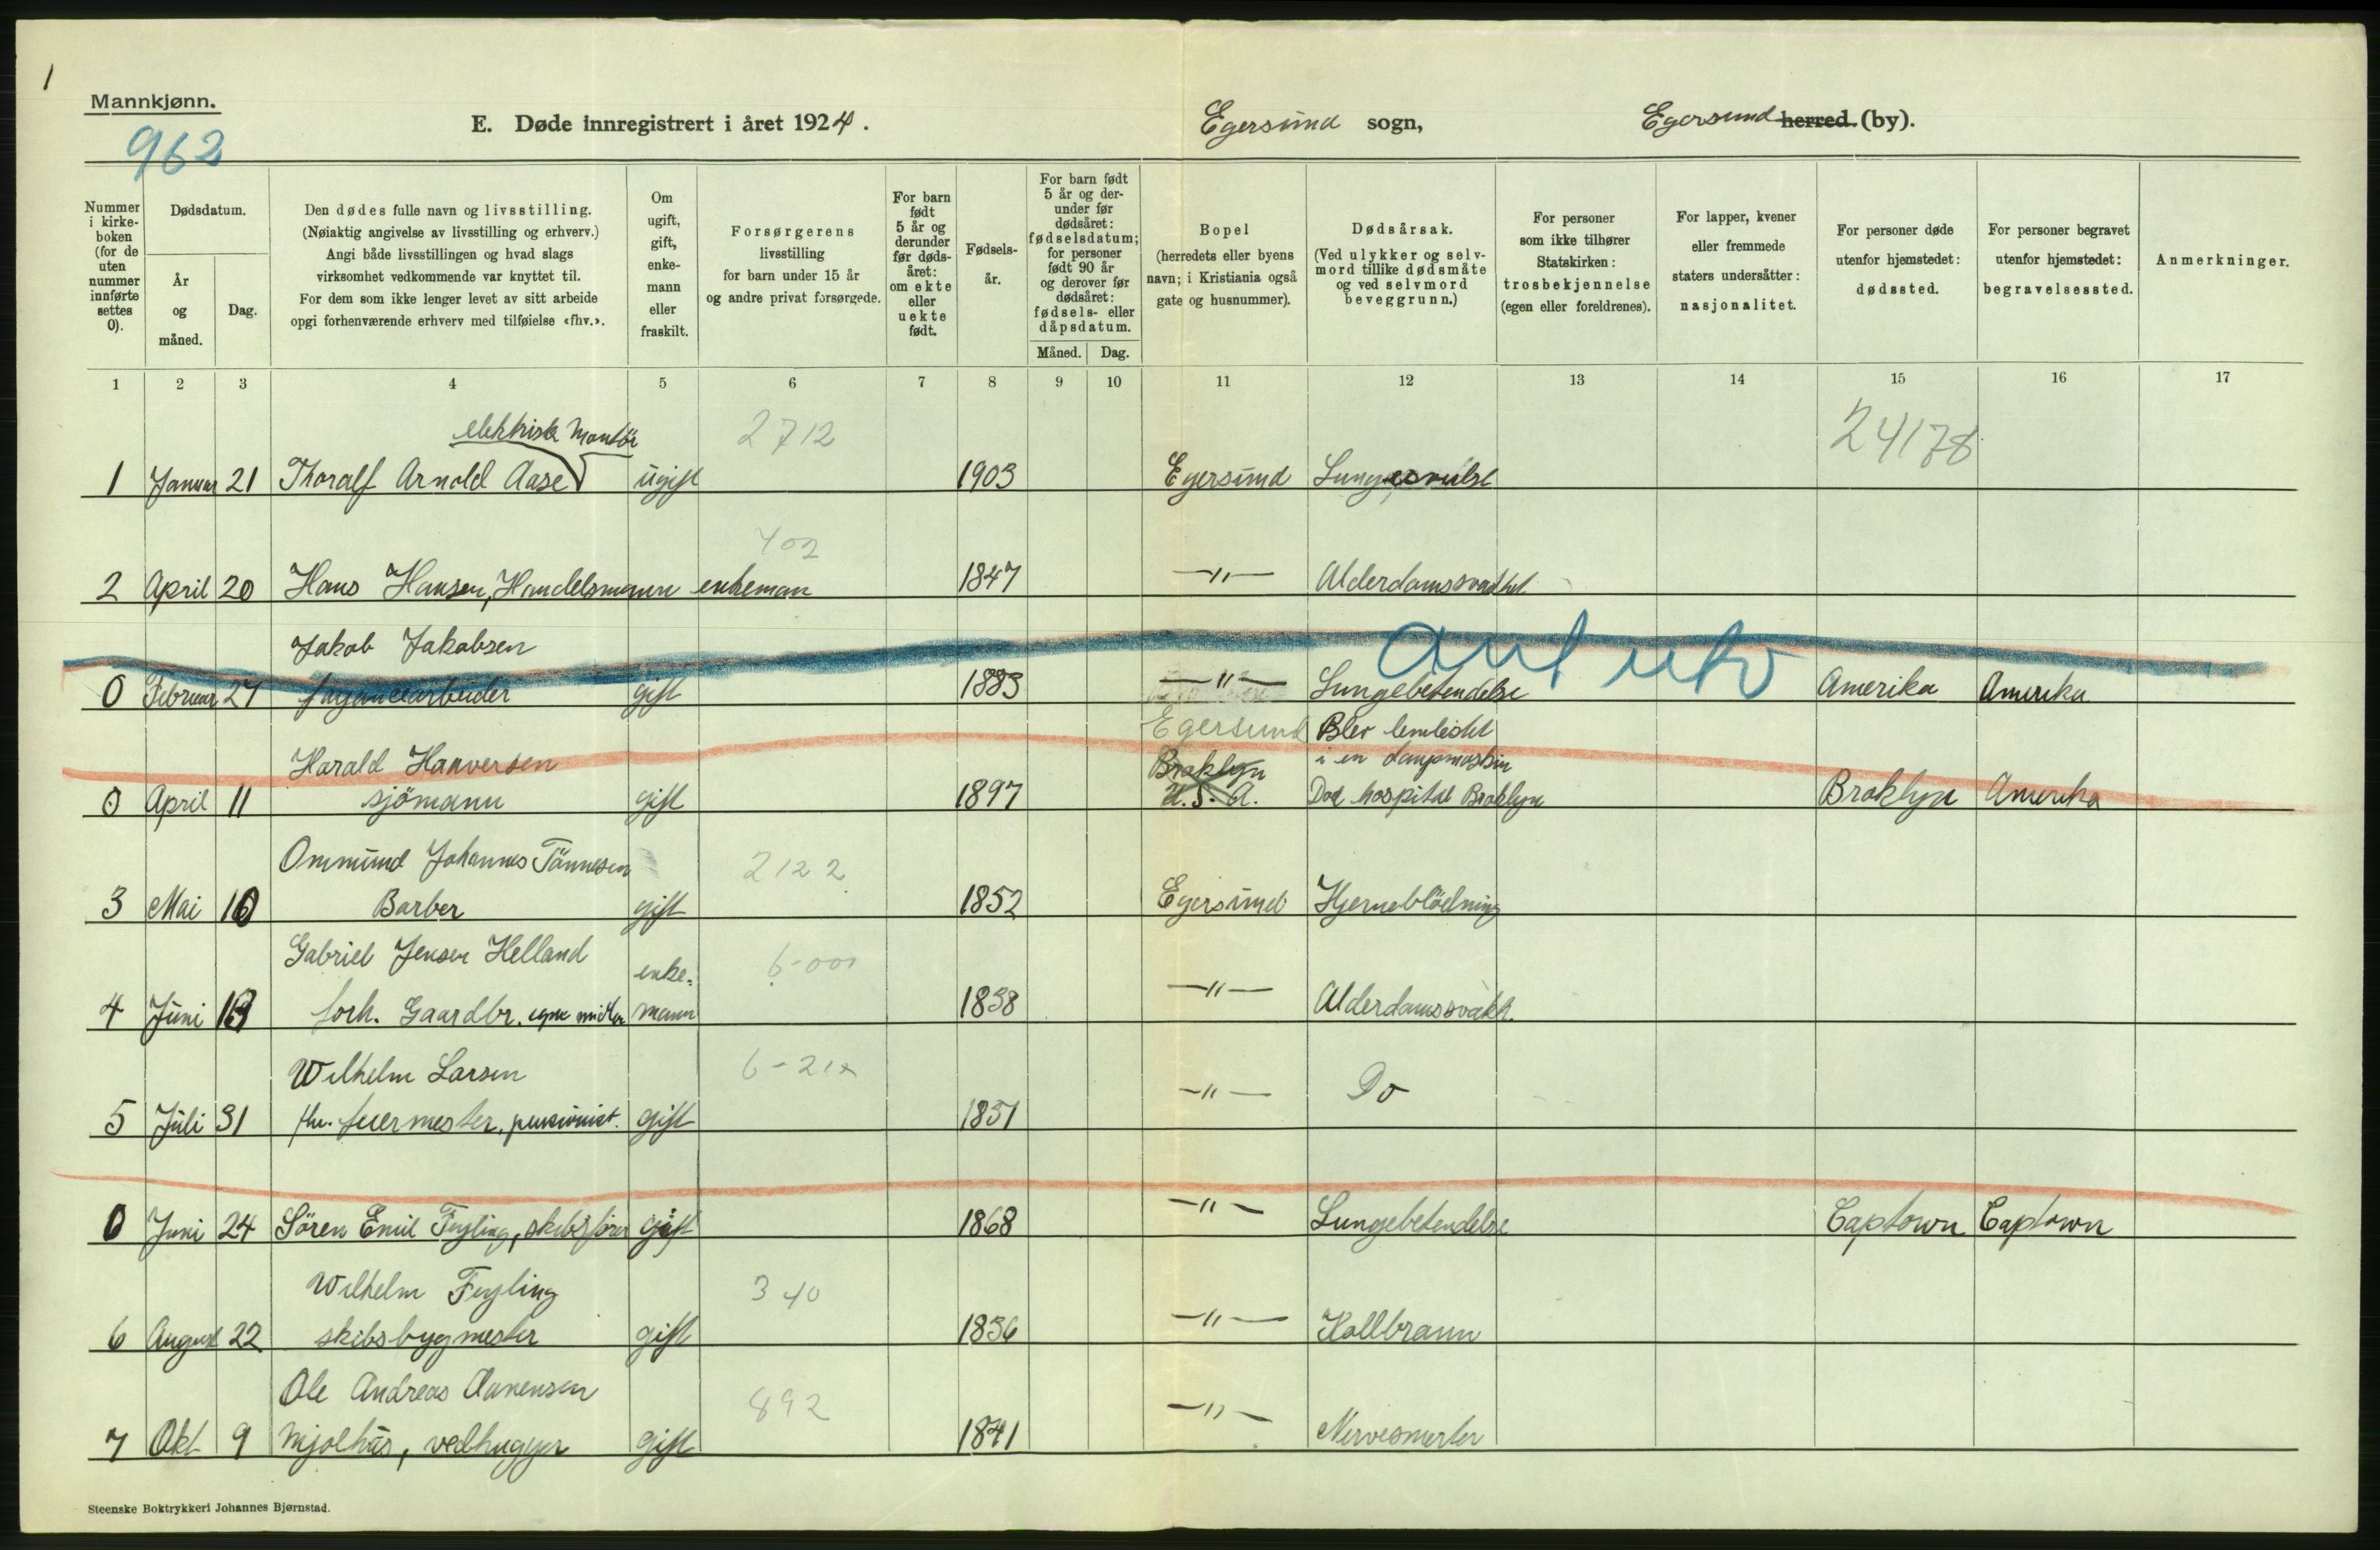 1
Mannkjønn.
962
E. Døde innregistrert i året 1924.
Egersund sogn,
Egersund herred (by).
Nummer i kirkeboken (for de uten nummer innførte settes 0).
Dødsdatum.
År og måned.
Dag.
Den dødes fulle navn og livsstilling.
(Nøiaktig angivelse av livsstilling og erhverv.)
Angi både livsstillingen og hvad slags
virksomhet vedkommende var knyttet til.
For dem som ikke lenger levet av sitt arbeide
opgi forhenværende erhverv med tilføielse «fhv.».
Om ugift, gift, enkemann eller fraskilt.
Forsørgerens livsstilling
for barn under 15 år
og andre privat forsørgede.
For barn født 5 år og derunder før dødsåret: om ekte eller uekte født.
Fødselsår.
For barn født 5 år og derunder før dødsåret: fødselsdatum; for personer født 90 år og derover før dødsåret: fødsels- eller dåpsdatum.
Måned.
Dag.
Bopel
(herredets eller byens navn; i Kristiania også gate og husnummer).
Dødsårsak.
(Ved ulykker og selvmord tillike dødsmåte og ved selvmord beveggrunn.)
For personer som ikke tilhører Statskirken: trosbekjennelse (egen eller foreldrenes).
For lapper, kvener eller fremmede staters undersåtter: nasjonalitet.
For personer døde utenfor hjemstedet: dødssted.
For personer begravet utenfor hjemstedet: begravelsessted.
Anmerkninger.
1 2 3 4 5 6 7 8 9 10 11 12 13 14 15 16 17
elektrisk Montör 2712 24178
1 Januar 21 Thoralf Arnold Aase ugift 1903 Egersund Lungesvulst
402
2 April 20 Hans Hansen, Handelsmann enkeman 1847 —"— Alderdomssvakhet
Jakob Jakobsen
0 Februar 27 fayancearbeider gift 1883 —"— Lungebetendelse Amerika Amerika
Egersund Blev lemlestet
Harald Hanversen Broklyn i en dampmaskin
0 April 11 sjömann gift 1897 U.S.A. Död hospital Broklyn Broklyn Amerika
Ommund Johannes Tönnesen 2122
3 Mai 10 Barber gift 1852 Egersund Hjerneblödning
Gabriel Jensen Helland enke= 6-000
4 Juni 13 forh. Gaardbr. egne midler mann 1838 —"— Alderdomssvakh.
Wilhelm Larsen 6-21x
5 Juli 31 fhv. fuermester, pensionist. gift 1851 —"— Do
0 Juni 24 Sören Emil Feyling, skibsförer gift 1868 —"— Lungebetendelse Captown Captown
Wilhelm Feyling 340
6 August 22 skibsbygmester gift 1836 —"— Kollbrann
Ole Andreas Aanensen 892
7 Okt 9 Mjolhus, vedhugger gift 1841 —"— Nervesmerter
Steenske Boktrykkeri Johannes Bjørnstad.